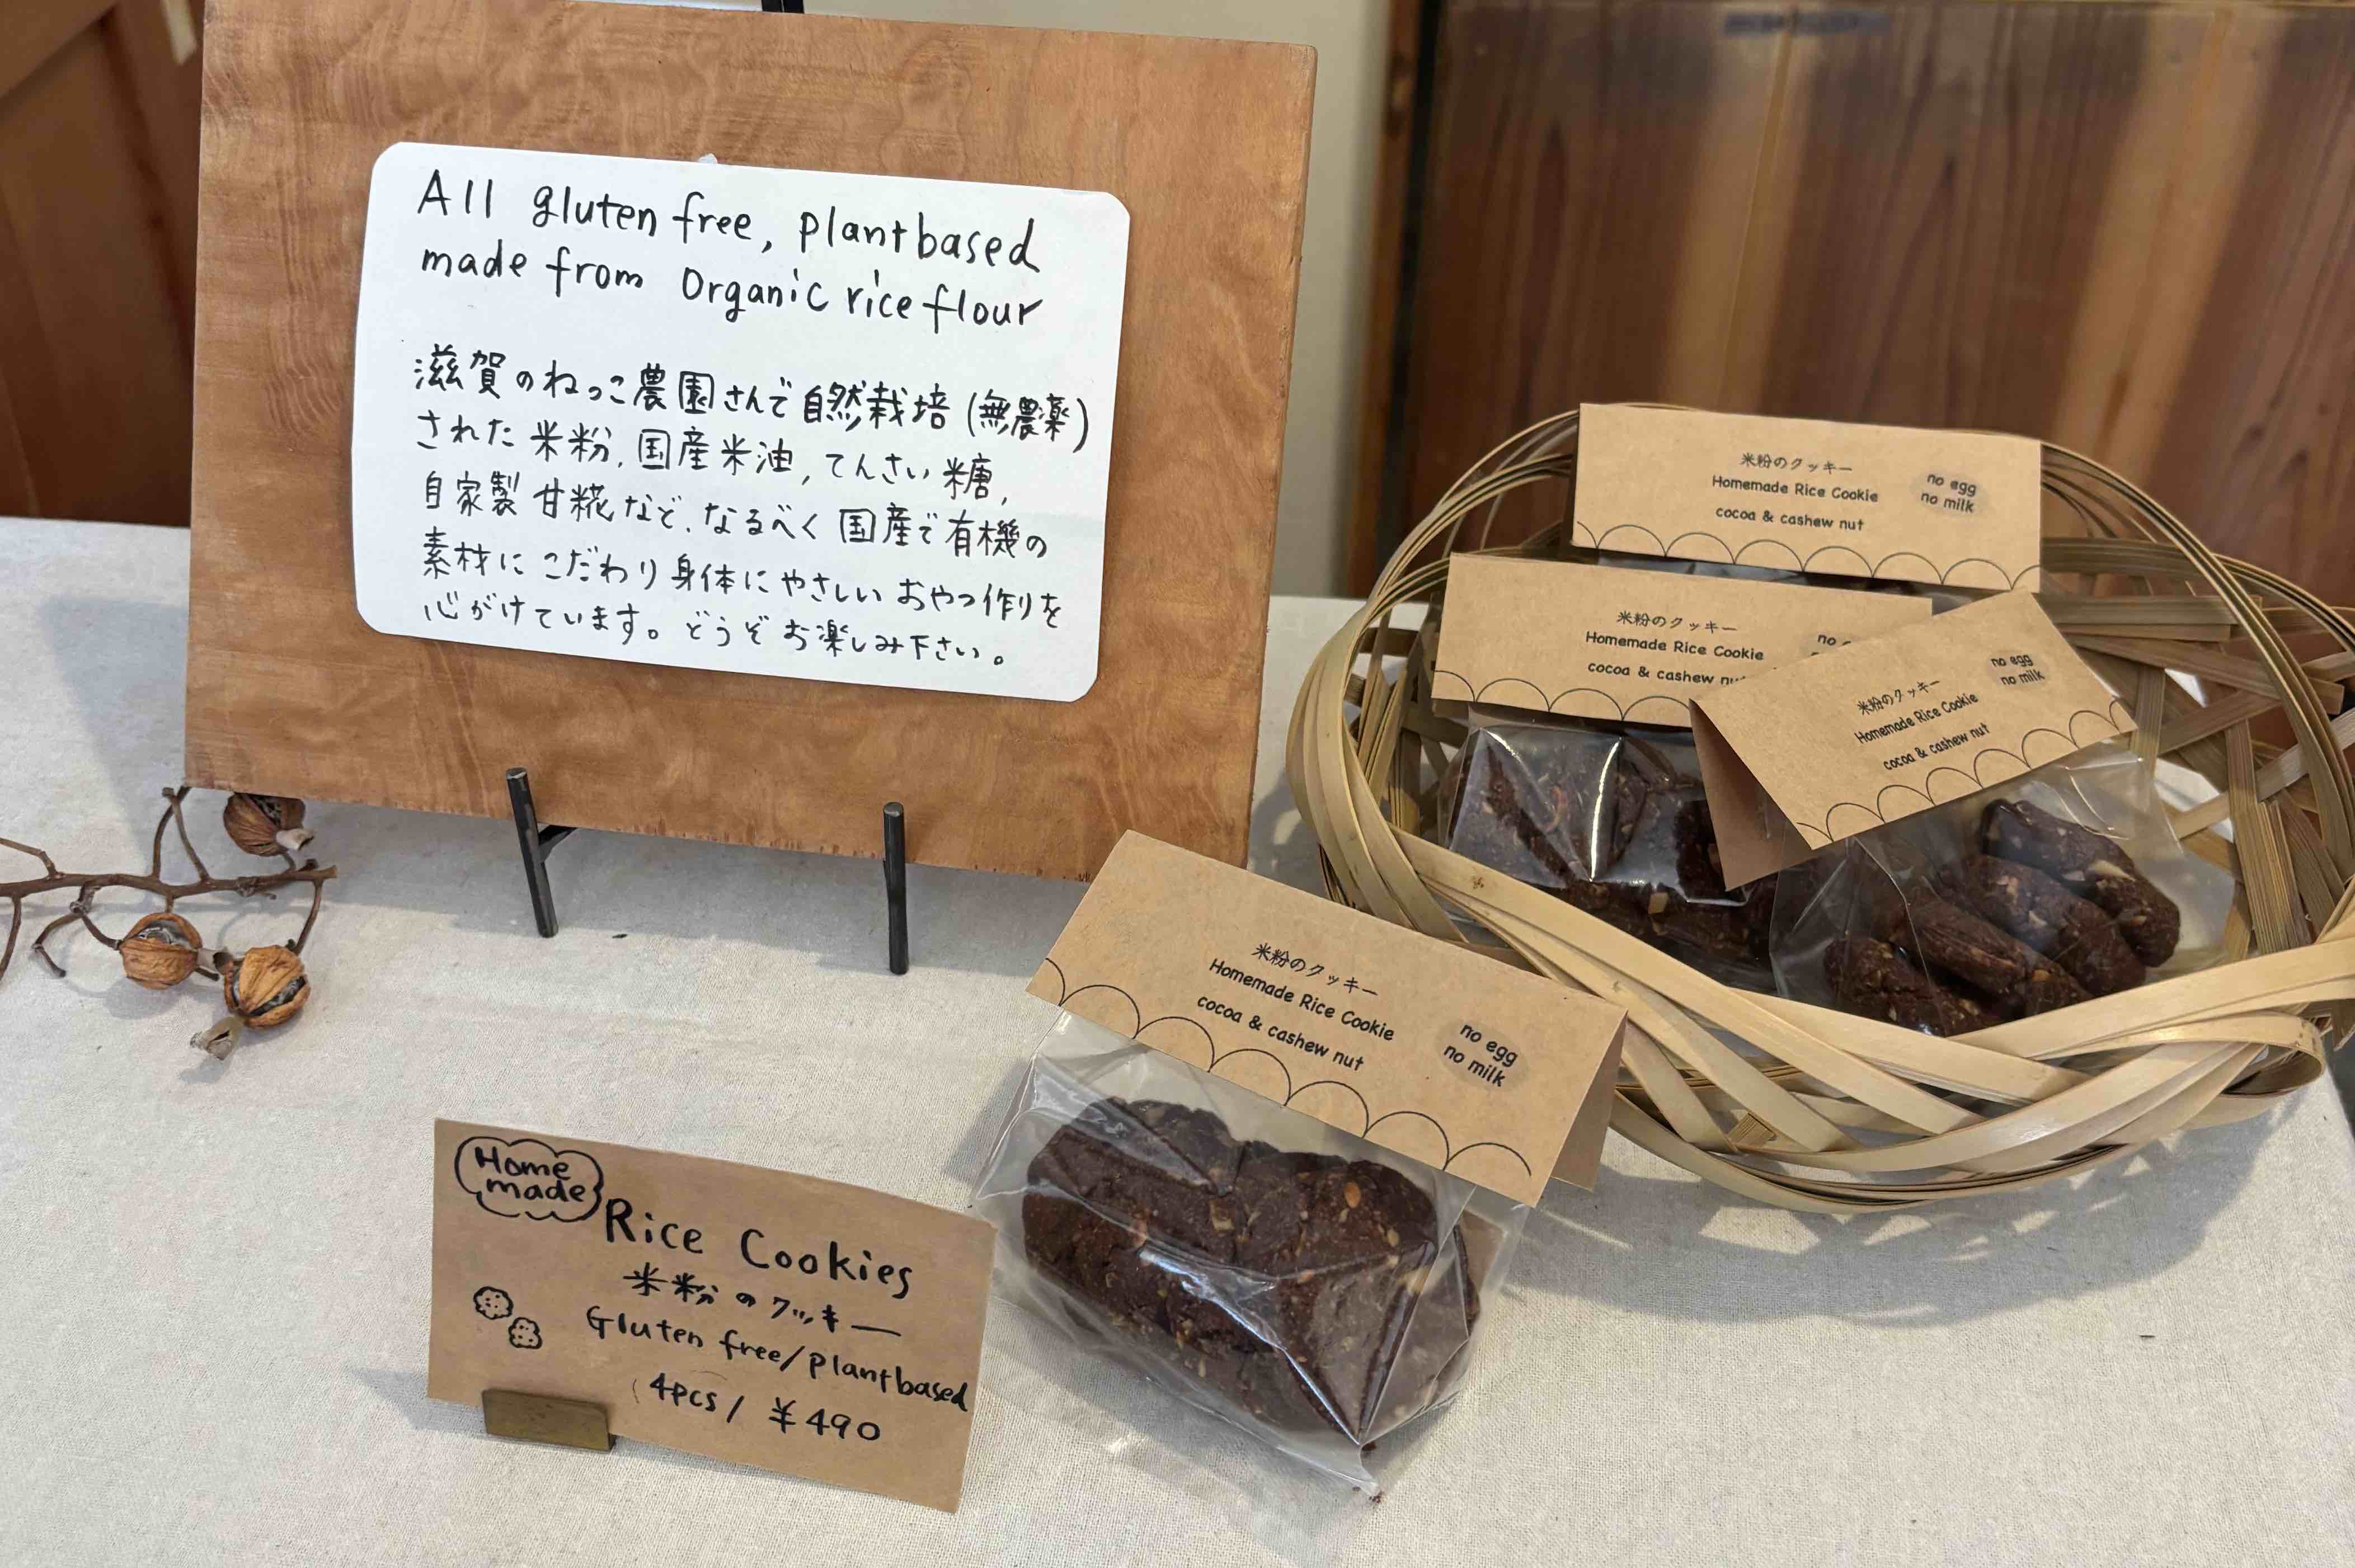 All gluten free, plantbased
made from Organic rice flour
滋賀のねっこ農園さんで自然栽培(無農薬)
された米粉、国産米油、てんさい糖、
自家製甘糀など、なるべく国産で有機の
素材にこだわり身体にやさしいおやつ作りを
心がけています。どうぞお楽しみ下さい。
米粉のクッキー
Homemade Rice Cookie
cocoa & cashew nut
no egg
no milk
米粉のクッキー
Homemade Rice Cookie
cocoa & cashew
no
米粉のクッキー
Homemade Rice Cookie
cocoa & cashew nut
no egg
no milk
米粉のクッキー
Homemade Rice Cookie
cocoa & cashew nut
no egg
no milk
Home
made
Rice Cookies
米粉のクッキー
Gluten free/plantbased
4pcs/ ¥490